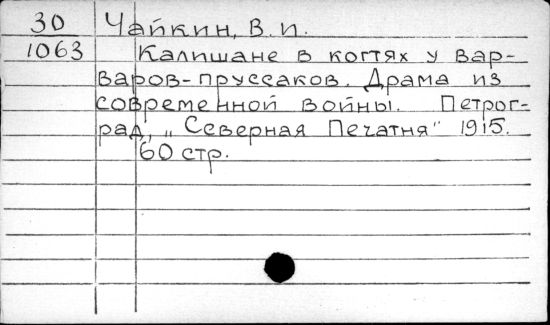 30 Чапкин, В. И.
1063 Калишане в когтях у вар-
варов-пруссаков. Драма из
современной войны. Петрог-
рад, „Северная Печатня" 1915.
60 стр.